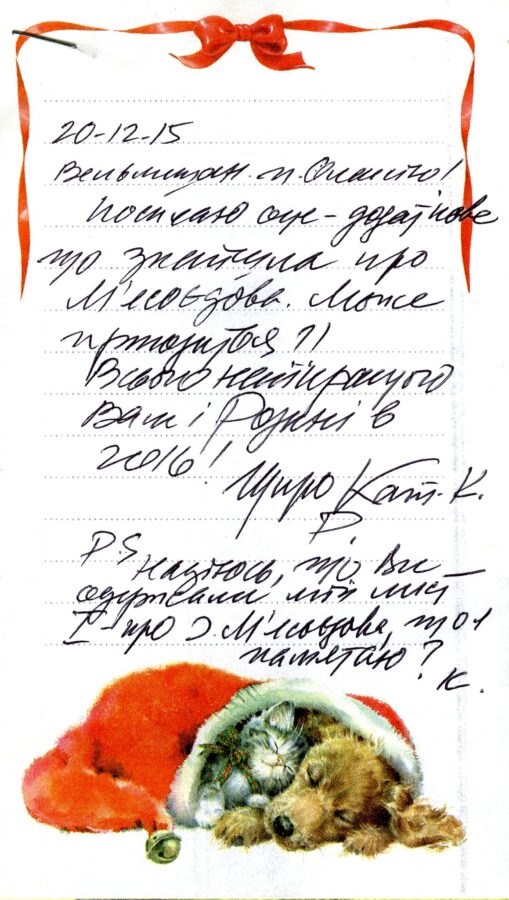 20-12-15
Вельмишан. п. Олексію!
Посилаю ще - додаткове
що знайшла про
М'ясоєдова. Може
пригодиться?!
Всього найкращого
Вам і Родині в
2016!
Щиро Кат. К.
Р.
P.S
Надіюсь, що Ви
одержали мій лист
I - про М'ясоєдова, що
памятаю?
К.